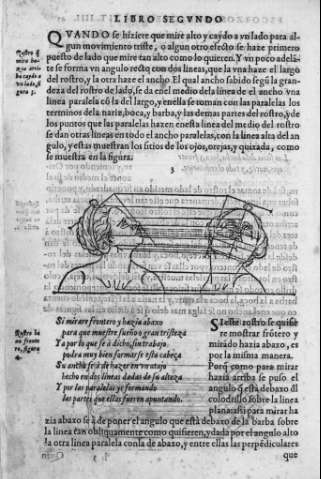 LIBRO SEGVNDO
QVANDO se hiziere que mire alto y caydo a vn lado para al-
gun mouimiento triste, o algun otro efecto se haze primero
puesto de lado que mire tan alto como lo quieren. Y vn poco adelã-
te se forma vn angulo recto con dos lineas, que la vna haze el largo
del rostro, y la otra haze el ancho El qual ancho sabido segũ la gran
deza del rostro de lado, se da en el medio de la linea de el ancho vna
linea paralela cõ la del largo, y en ella se toman con las paralelas los
terminos de la nariz, boca, y barba, y las demas partes del rostro, y de
los puntos que las paralelas hazen en esta linea del medio del rostro
se dan otras lineas en todo el ancho paralelas, con la linea alta del an
gulo, y estas muestran los sitios de los ojos, orejas, y quixada, como
se muestra en la figura.
Rostro q̃
mira ba-
xo
caydo a
vn lado,
figura 3.
3
Rostro ba
xo fronte
ro, figura
4.
Si mirare frontero y hazia abaxo
para que muestre sueño o gran tristeza
Ya por lo que se à dicho, sin trabajo
podra muy bien formarse esta cabeça
Su anchũ se à de hazer en vn atajo
hecho en dos lineas dadas de su alteza
Y por las paralelas yr formando
las partes que ellas fueren apuntando.
Si este rostro se quisie
re mostrar frõtero y
mirãdo hazia abaxo, es
por la misma manera.
Porq̃ como para mirar
hazia arriba se puso el
angulo q̃ está debaxo dl
colodrillo sobre la linea
plana: assi para mirar ha
zia abaxo se à de poner el angulo que està debaxo de la barba sobre
la linea tan obliquamente como quisieren, y dada por el angulo alto
la otra linea paralela con la de abaxo, y entre ellas las perpẽdiculares
que